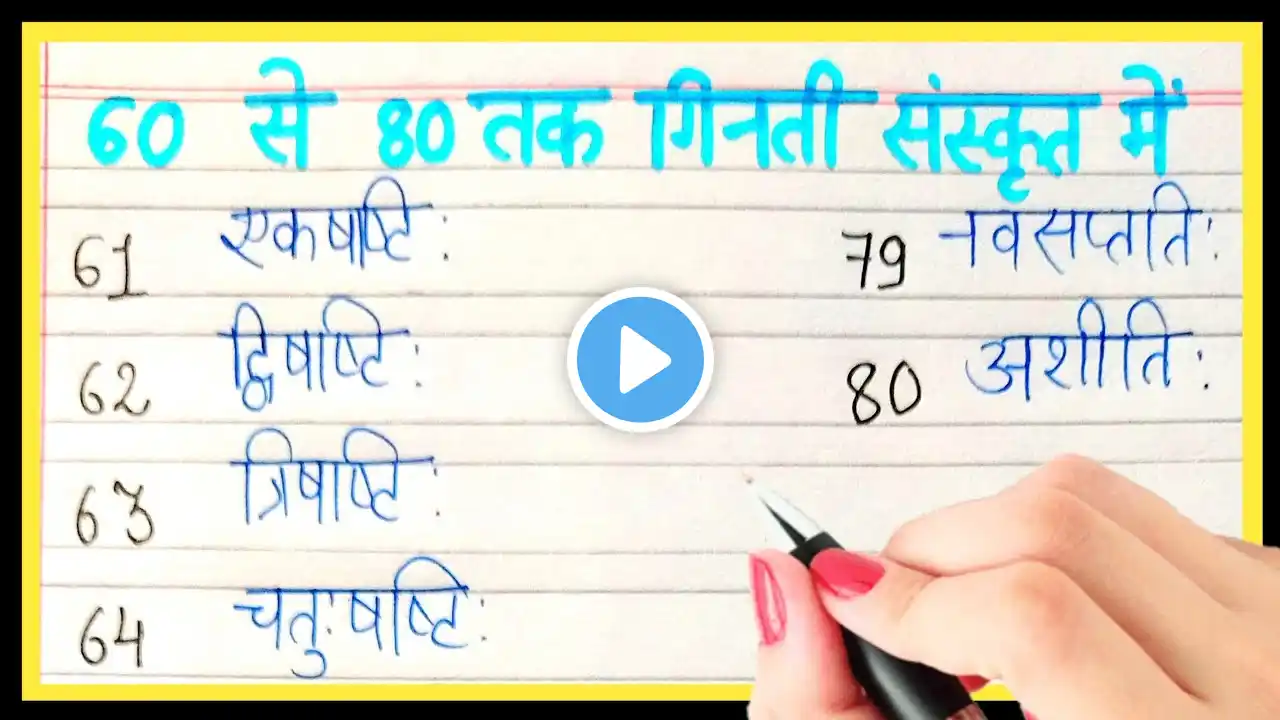 60 से 80 तक गिनती संस्कृत में
61 एकषष्टिः
62 द्विषष्टिः
63 त्रिषष्टिः
64 चतुःषष्टिः
79 नवसप्ततिः
80 अशीतिः